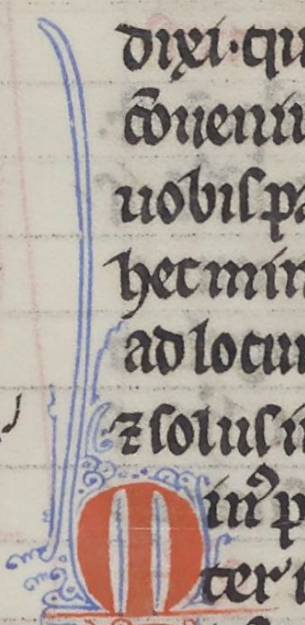 dixi·qu
cōuenii
uobis p
hec min
ad locu
⁊ solus i
M in⁹ p
ter i